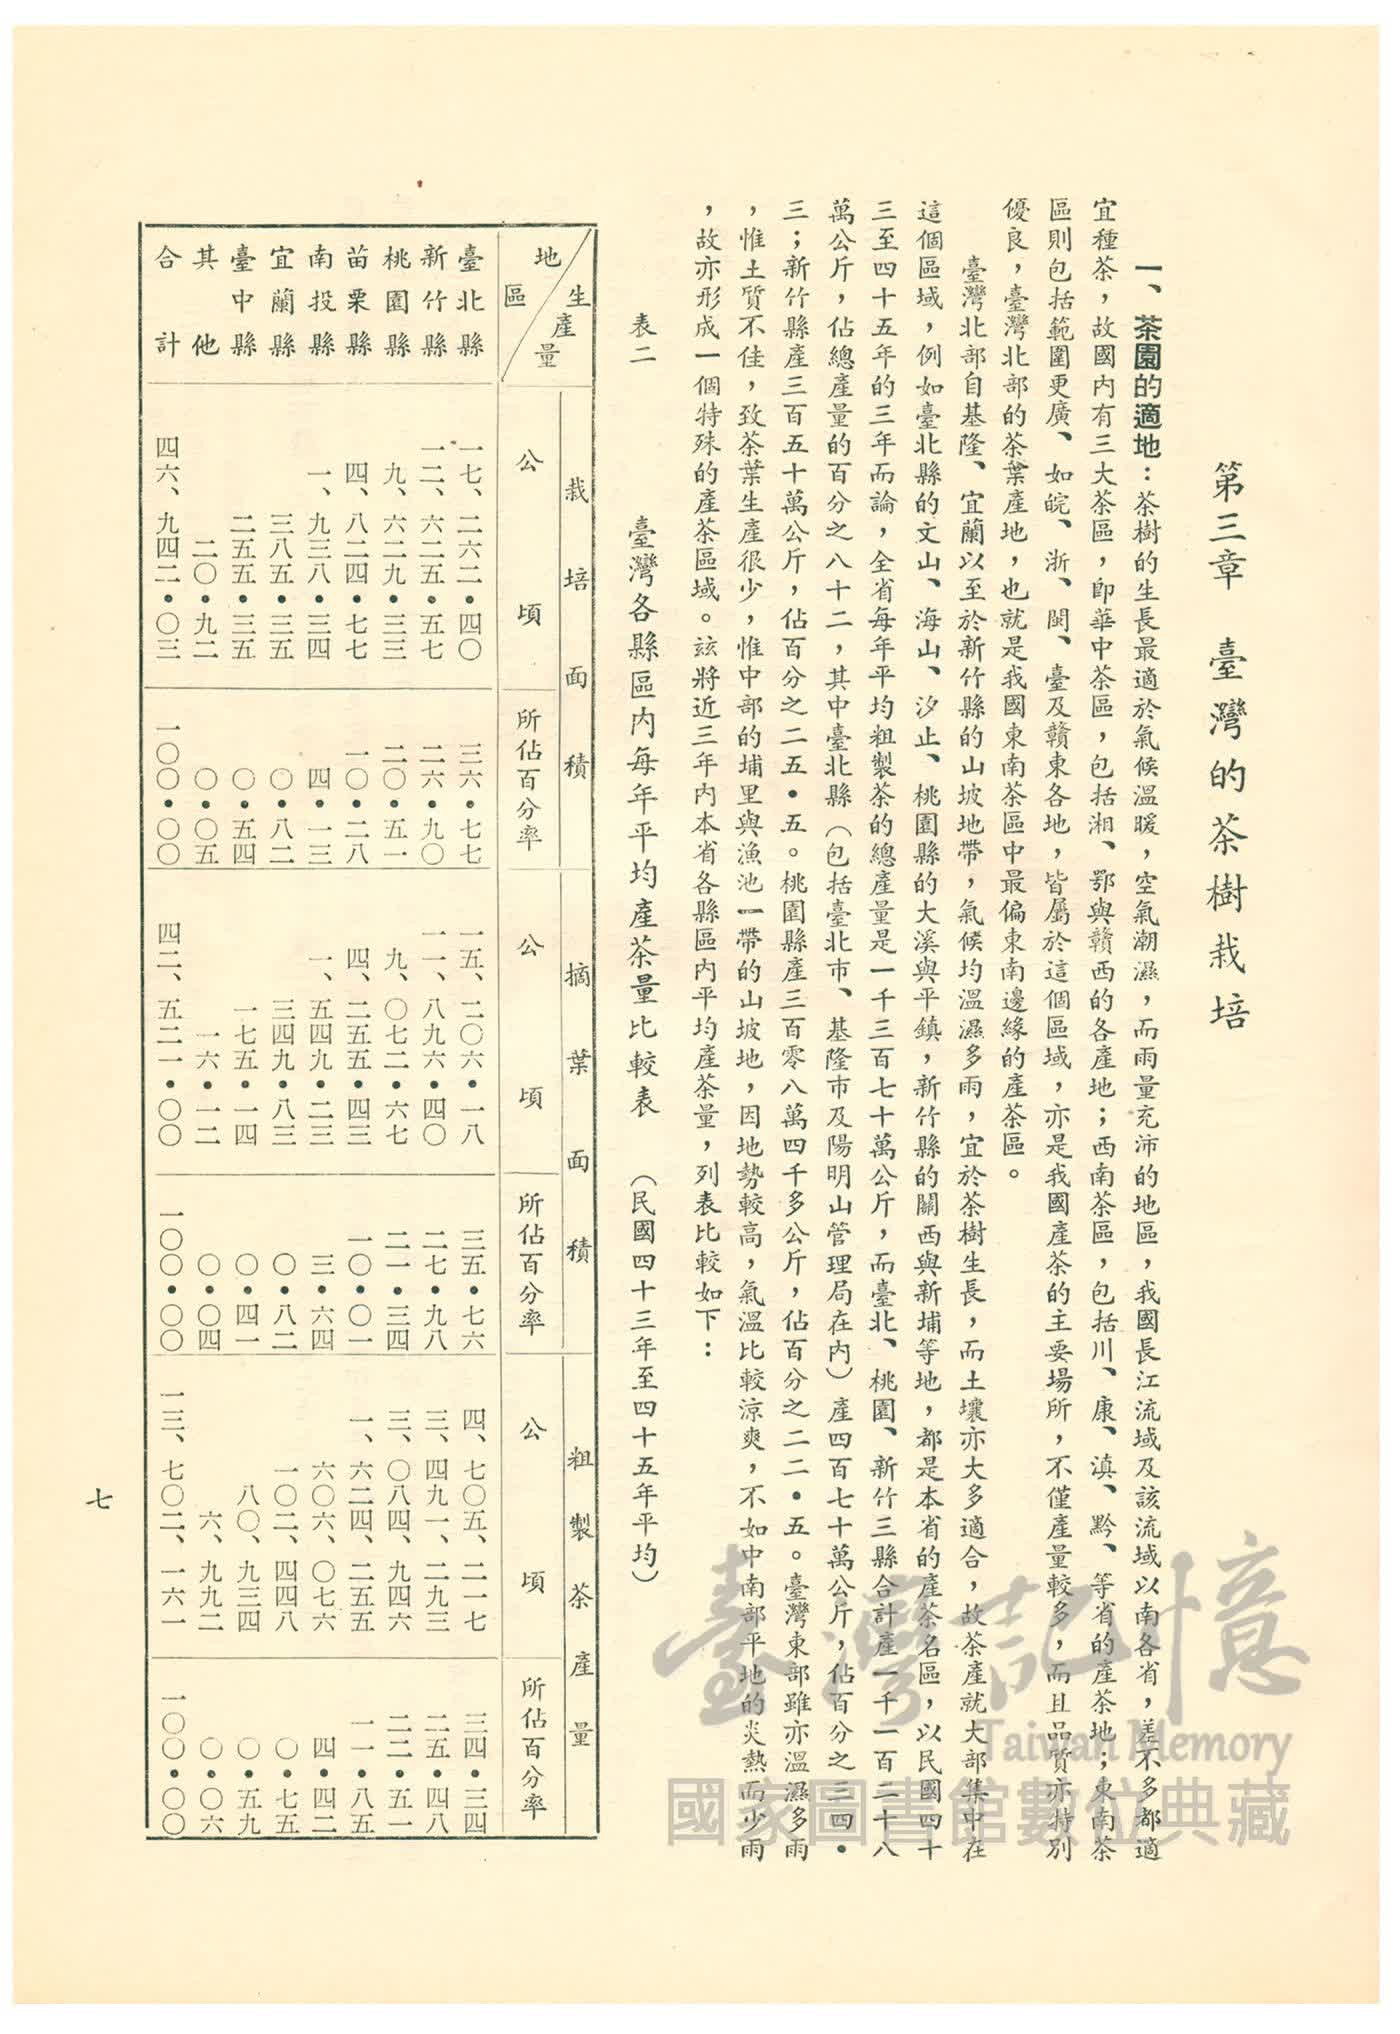 第三章　臺灣的茶樹栽培
一、茶園的適地：茶樹的生長最適於氣候溫暖，空氣潮濕，而雨量充沛的地區，我國長江流域及該流域以南各省，差不多都適
宜種茶，故國內有三大茶區，卽華中茶區，包括湘、鄂與贛西的各產地；西南茶區，包括川、康、滇、黔、等省的產茶地；東南茶
區則包括範圍更廣、如皖、浙、閩、臺及贛東各地，皆屬於這個區域，亦是我國產茶的主要場所，不僅產量較多，而且品質亦特別
優良，臺灣北部的茶葉產地，也就是我國東南茶區中最偏東南邊緣的產茶區。
臺灣北部自基隆、宜蘭以至於新竹縣的山坡地帶，氣候均溫濕多雨，宜於茶樹生長，而土壤亦大多適合，故茶產就大部集中在
這個區域，例如臺北縣的文山、海山、汐止、桃園縣的大溪與平鎮，新竹縣的關西與新埔等地，都是本省的產茶名區，以民國四十
三至四十五年的三年而論，全省每年平均粗製茶的總產量是一千三百七十萬公斤，而臺北、桃園、新竹三縣合計產一千一百二十八
萬公斤，佔總產量的百分之八十二，其中臺北縣（包括臺北市、基隆市及陽明山管理局在內）產四百七十萬公斤，佔百分之三四•
三；新竹縣產三百五十萬公斤，佔百分之二五•五。桃園縣產三百零八萬四千多公斤，佔百分之二二•五。臺灣東部雖亦溫濕多雨
，惟土質不佳，致茶葉生產很少，惟中部的埔里與漁池一帶的山坡地，因地勢較高，氣溫比較涼爽，不如中南部平地的炎熱而少雨
，故亦形成一個特殊的產茶區域。該將近三年內本省各縣區內平均產茶量，列表比較如下：
表二　臺灣各縣區內每年平均產茶量比較表　（民國四十三年至四十五年平均）
生產量
地區
栽培面積　摘葉面積　粗製茶產量
公頃　所佔百分率　公頃　所佔百分率　公頃　所佔百分率
臺北縣　一七、二六二•四〇　三六•七七　一五、二〇六•一八　三五•七六　四、七〇五、二一七　三四•三四
新竹縣　一二、六二五•五七　二六•九〇　一一、八九六•四〇　二七•九八　三、四九一、二九三　二五•四八
桃園縣　九、六二九•三三　二〇•五一　九、〇七二•六七　二一•三四　三、〇八四、九四六　二二•五一
苗栗縣　四、八二四•七七　一〇•二八　四、二五五•四三　一〇•〇一　一、六二四、二五五　一一•八五
南投縣　一、九三八•三四　四•一三　一、五四九•二三　三•六四　六〇六、〇七六　四•四二
宜蘭縣　三八五•三五　〇•八二　三四九•八三　〇•八二　一〇二、四四八　〇•七五
臺中縣　二五五•三五　〇•五四　一七五•一四　〇•四一　八〇、九三四　〇•五九
其他　二〇•九二　〇•〇五　一六•一二　〇•〇四　六、九九二　〇•〇六
合計　四六、九四二•〇三　一〇〇•〇〇　四二、五二一•〇〇　一〇〇•〇〇　一三、七〇二、一六一　一〇〇•〇〇
七
臺灣記憶
Taiwan Memory
國家圖書館數位典藏